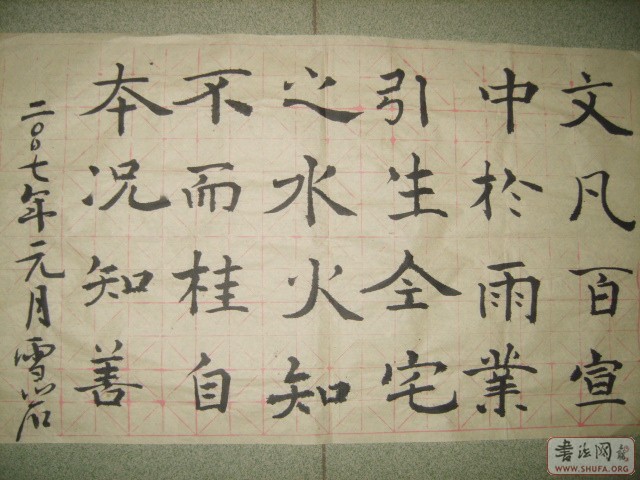 文凡百宣
中於雨業
引生全宅
之水火知
不而桂自
本況知善
二〇〇七年元月雪石
書法网
WWW.SHUFA.ORG